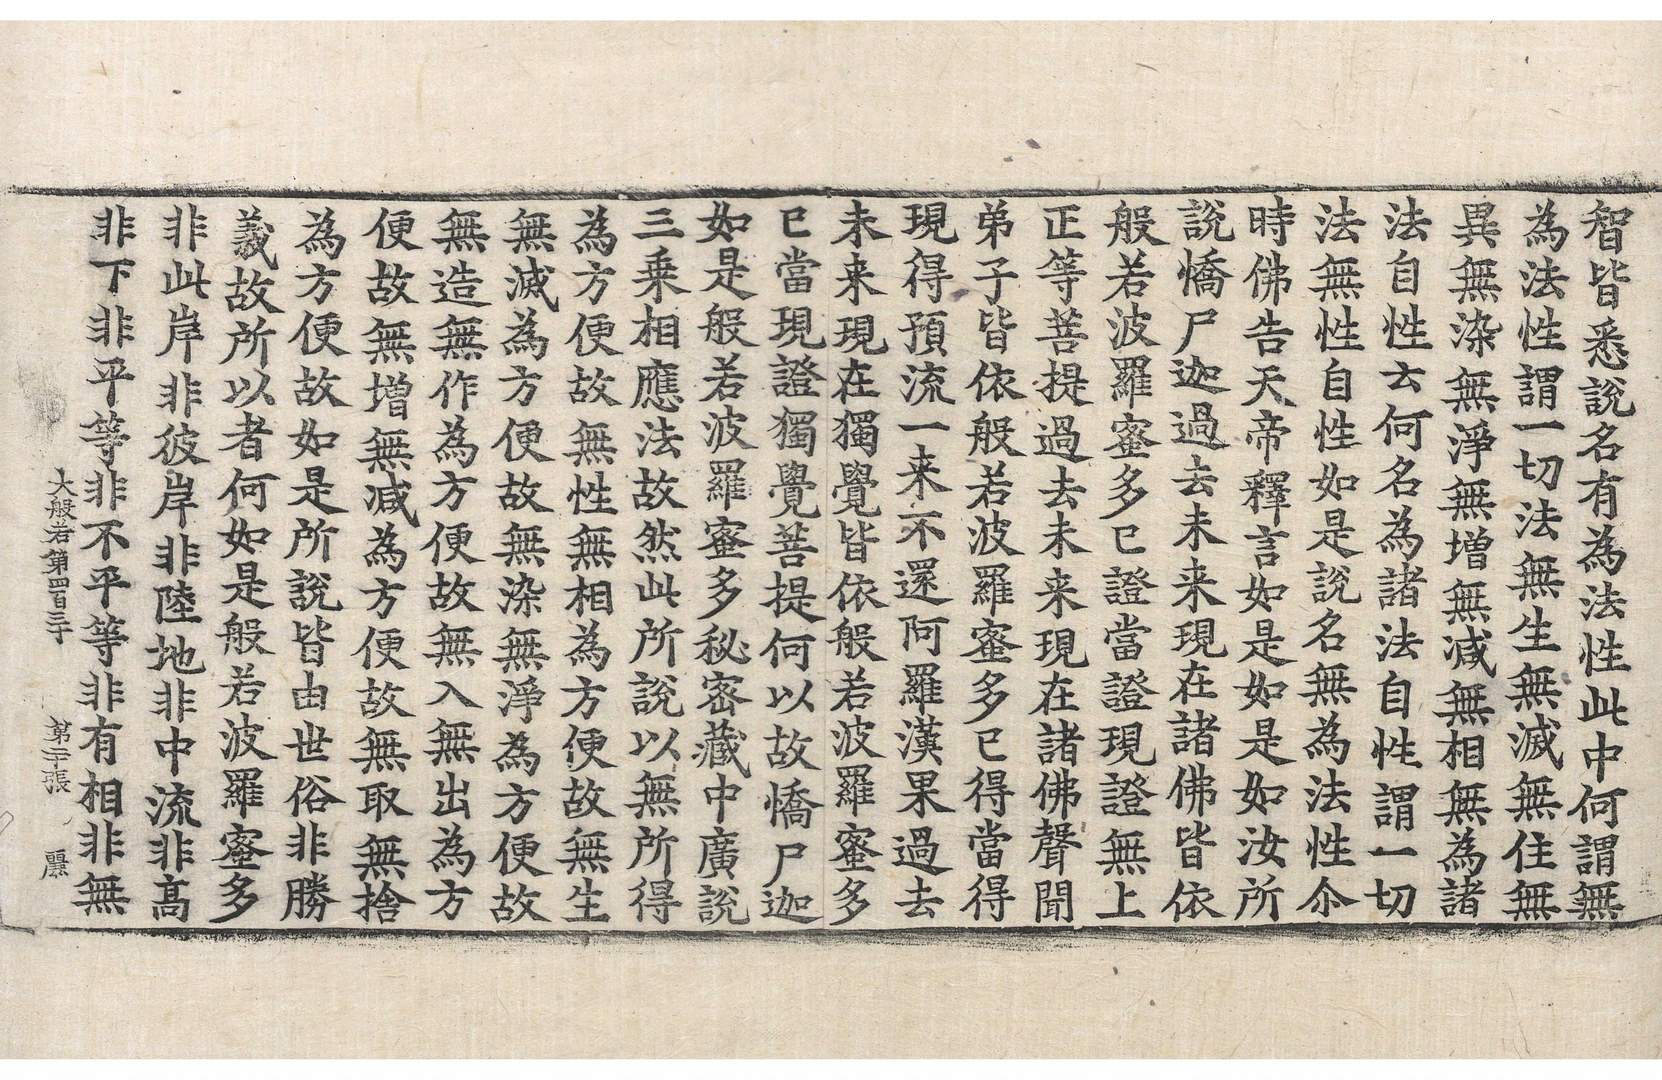 智皆悉說名有為法性此中何謂無
為法性謂一切法無生無滅無住無
異無染無淨無增無減無相無為諸
法自性云何名為諸法自性謂一切
法無性自性如是說名無為法性尒
時佛告天帝釋言如是如是如汝所
說憍尸迦過去未来現在諸佛皆依
般若波羅蜜多已證當證現證無上
正等菩提過去未来現在諸佛聲聞
弟子皆依般若波羅蜜多已得當得
現得預流一来不還阿羅漢果過去
未来現在獨覺皆依般若波羅蜜多
已當現證獨覺菩提何以故憍尸迦
如是般若波羅蜜多秘密藏中廣說
三乗相應法故然此所說以無所得
為方便故無性無相為方便故無生
無滅為方便故無染無淨為方便故
無造無作為方便故無入無出為方
便故無增無減為方便故無取無捨
為方便故如是所說皆由世俗非勝
義故所以者何如是般若波羅蜜多
非此岸非彼岸非陸地非中流非高
非下非平等非不平等非有相非無
大般若第四百三十 第二十張 麗